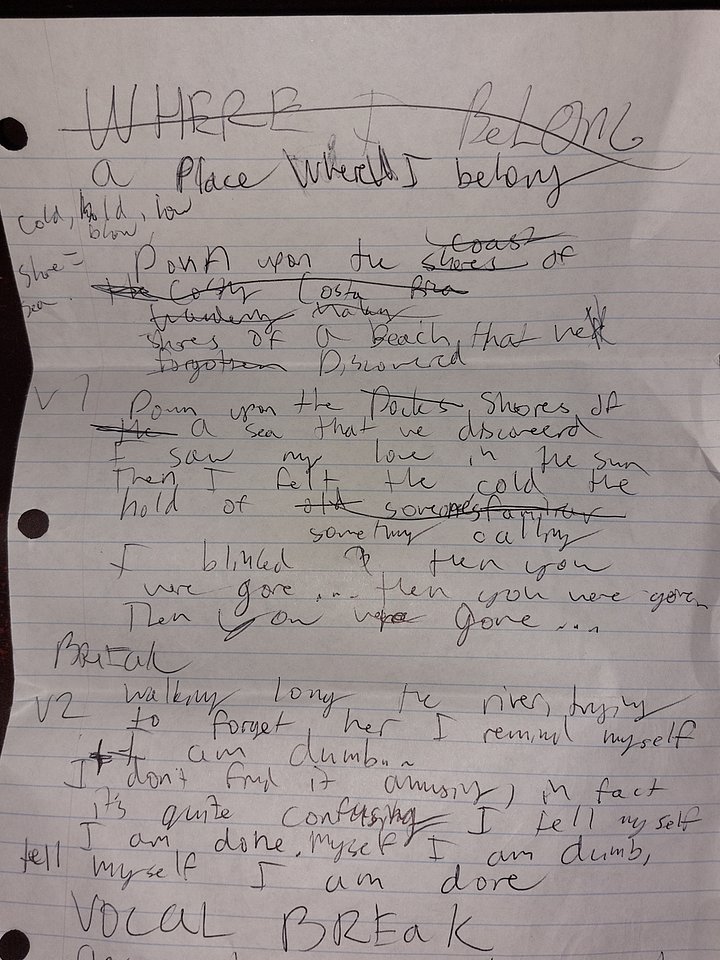 WHERE I BELONG
a Place Where I belong
Cold, hold, low
blow
Shore =
sea.
Down upon the shores coast of
the Costa Bra
shores of a Beach, that we
forgotten Discovered
V1
Down upon the Docks Shores of
the a sea that we discoverd
I saw my love in the sun
Then I felt the cold the
hold of old someones familiar
something calling
I blinked & then you
were gone... then you were gone
Then you were gone ...
BREAK
V2
walking long the river, trying
to forget her I remind myself
I am dumb..
I don't find it amusing, in fact
it's quite confusing I tell my self
I am done. Myself I am dumb,
tell myself I am done
VOCAL BREAK